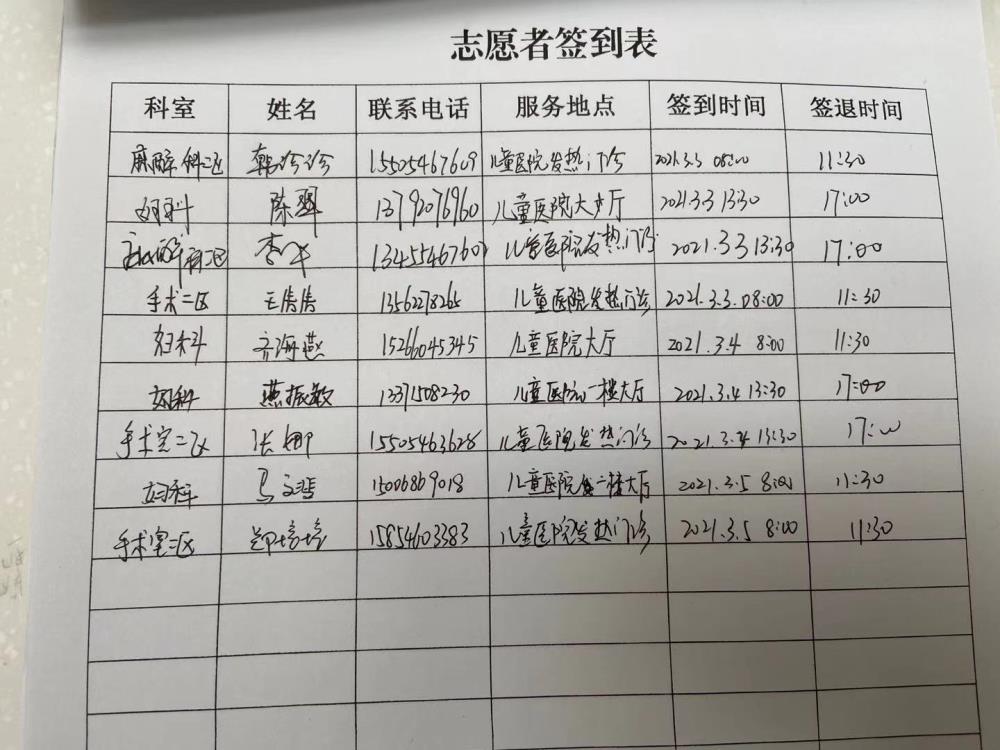 志愿者签到表
科室 姓名 联系电话 服务地点 签到时间 签退时间
麻醉科二区 韩诊诊 15505467609 儿童医院发热门诊 2021.3.3 08:00 11:30
妇科 陈翠 13792076960 儿童医院大厅 2021.3.3 13:30 17:00
麻醉科二区 李 1345546760 儿童医院发热门诊 2021.3.3 13:30 17:00
手术二区 王倩倩 13562278265 儿童医院发热门诊 2021.3.3. 08:00 11:30
妇科 齐海燕 15266045345 儿童医院大厅 2021.3.4 8:00 11:30
妇科 燕振敏 13371508230 儿童医院一楼大厅 2021.3.4 13:30 17:00
手术室二区 张娜 15505463628 儿童医院发热门诊 2021.3.4 13:30 17:00
妇科 马文 15006869018 儿童医院二楼大厅 2021.3.5 8:00 11:30
手术室二区 郑培培 15854603383 儿童医院发热门诊 2021.3.5 8:00 11:30